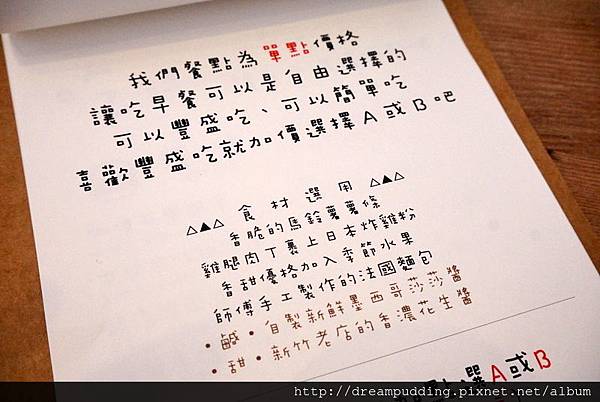 我們餐點為單點價格
讓吃早餐可以是自由選擇的
可以豐盛吃、可以簡單吃
喜歡豐盛吃就加價選擇A或B吧
△▲△ 食材選用 △▲△
香脆的馬鈴薯薯條
雞腿肉丁裹上日本炸雞粉
香甜優格加入季節水果
師傅手工製作的法國麵包
•鹹•自製新鮮墨西哥莎莎醬
•甜•新竹老店的香濃花生醬
點選A或B
http://dreampudding.pixnet.net/album